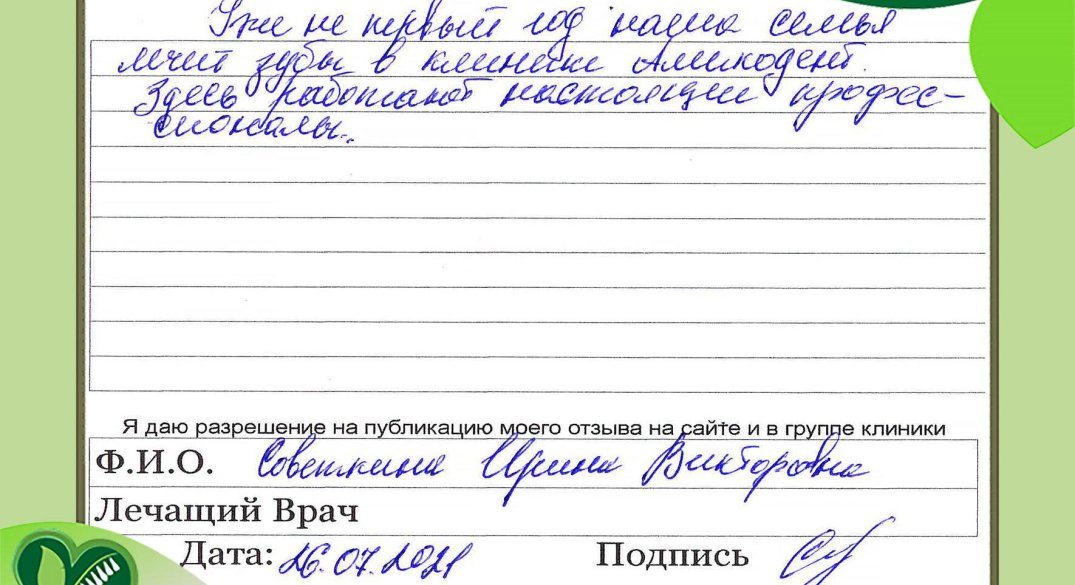 Уже не первый год наша семья
лечит зубы в клинике Амикодент.
Здесь работают настоящие профес-
сионалы.
Я даю разрешение на публикацию моего отзыва на сайте и в группе клиники
Ф.И.О. Советкина Ирина Викторовна
Лечащий Врач
Дата: 26.07.2021 Подпись